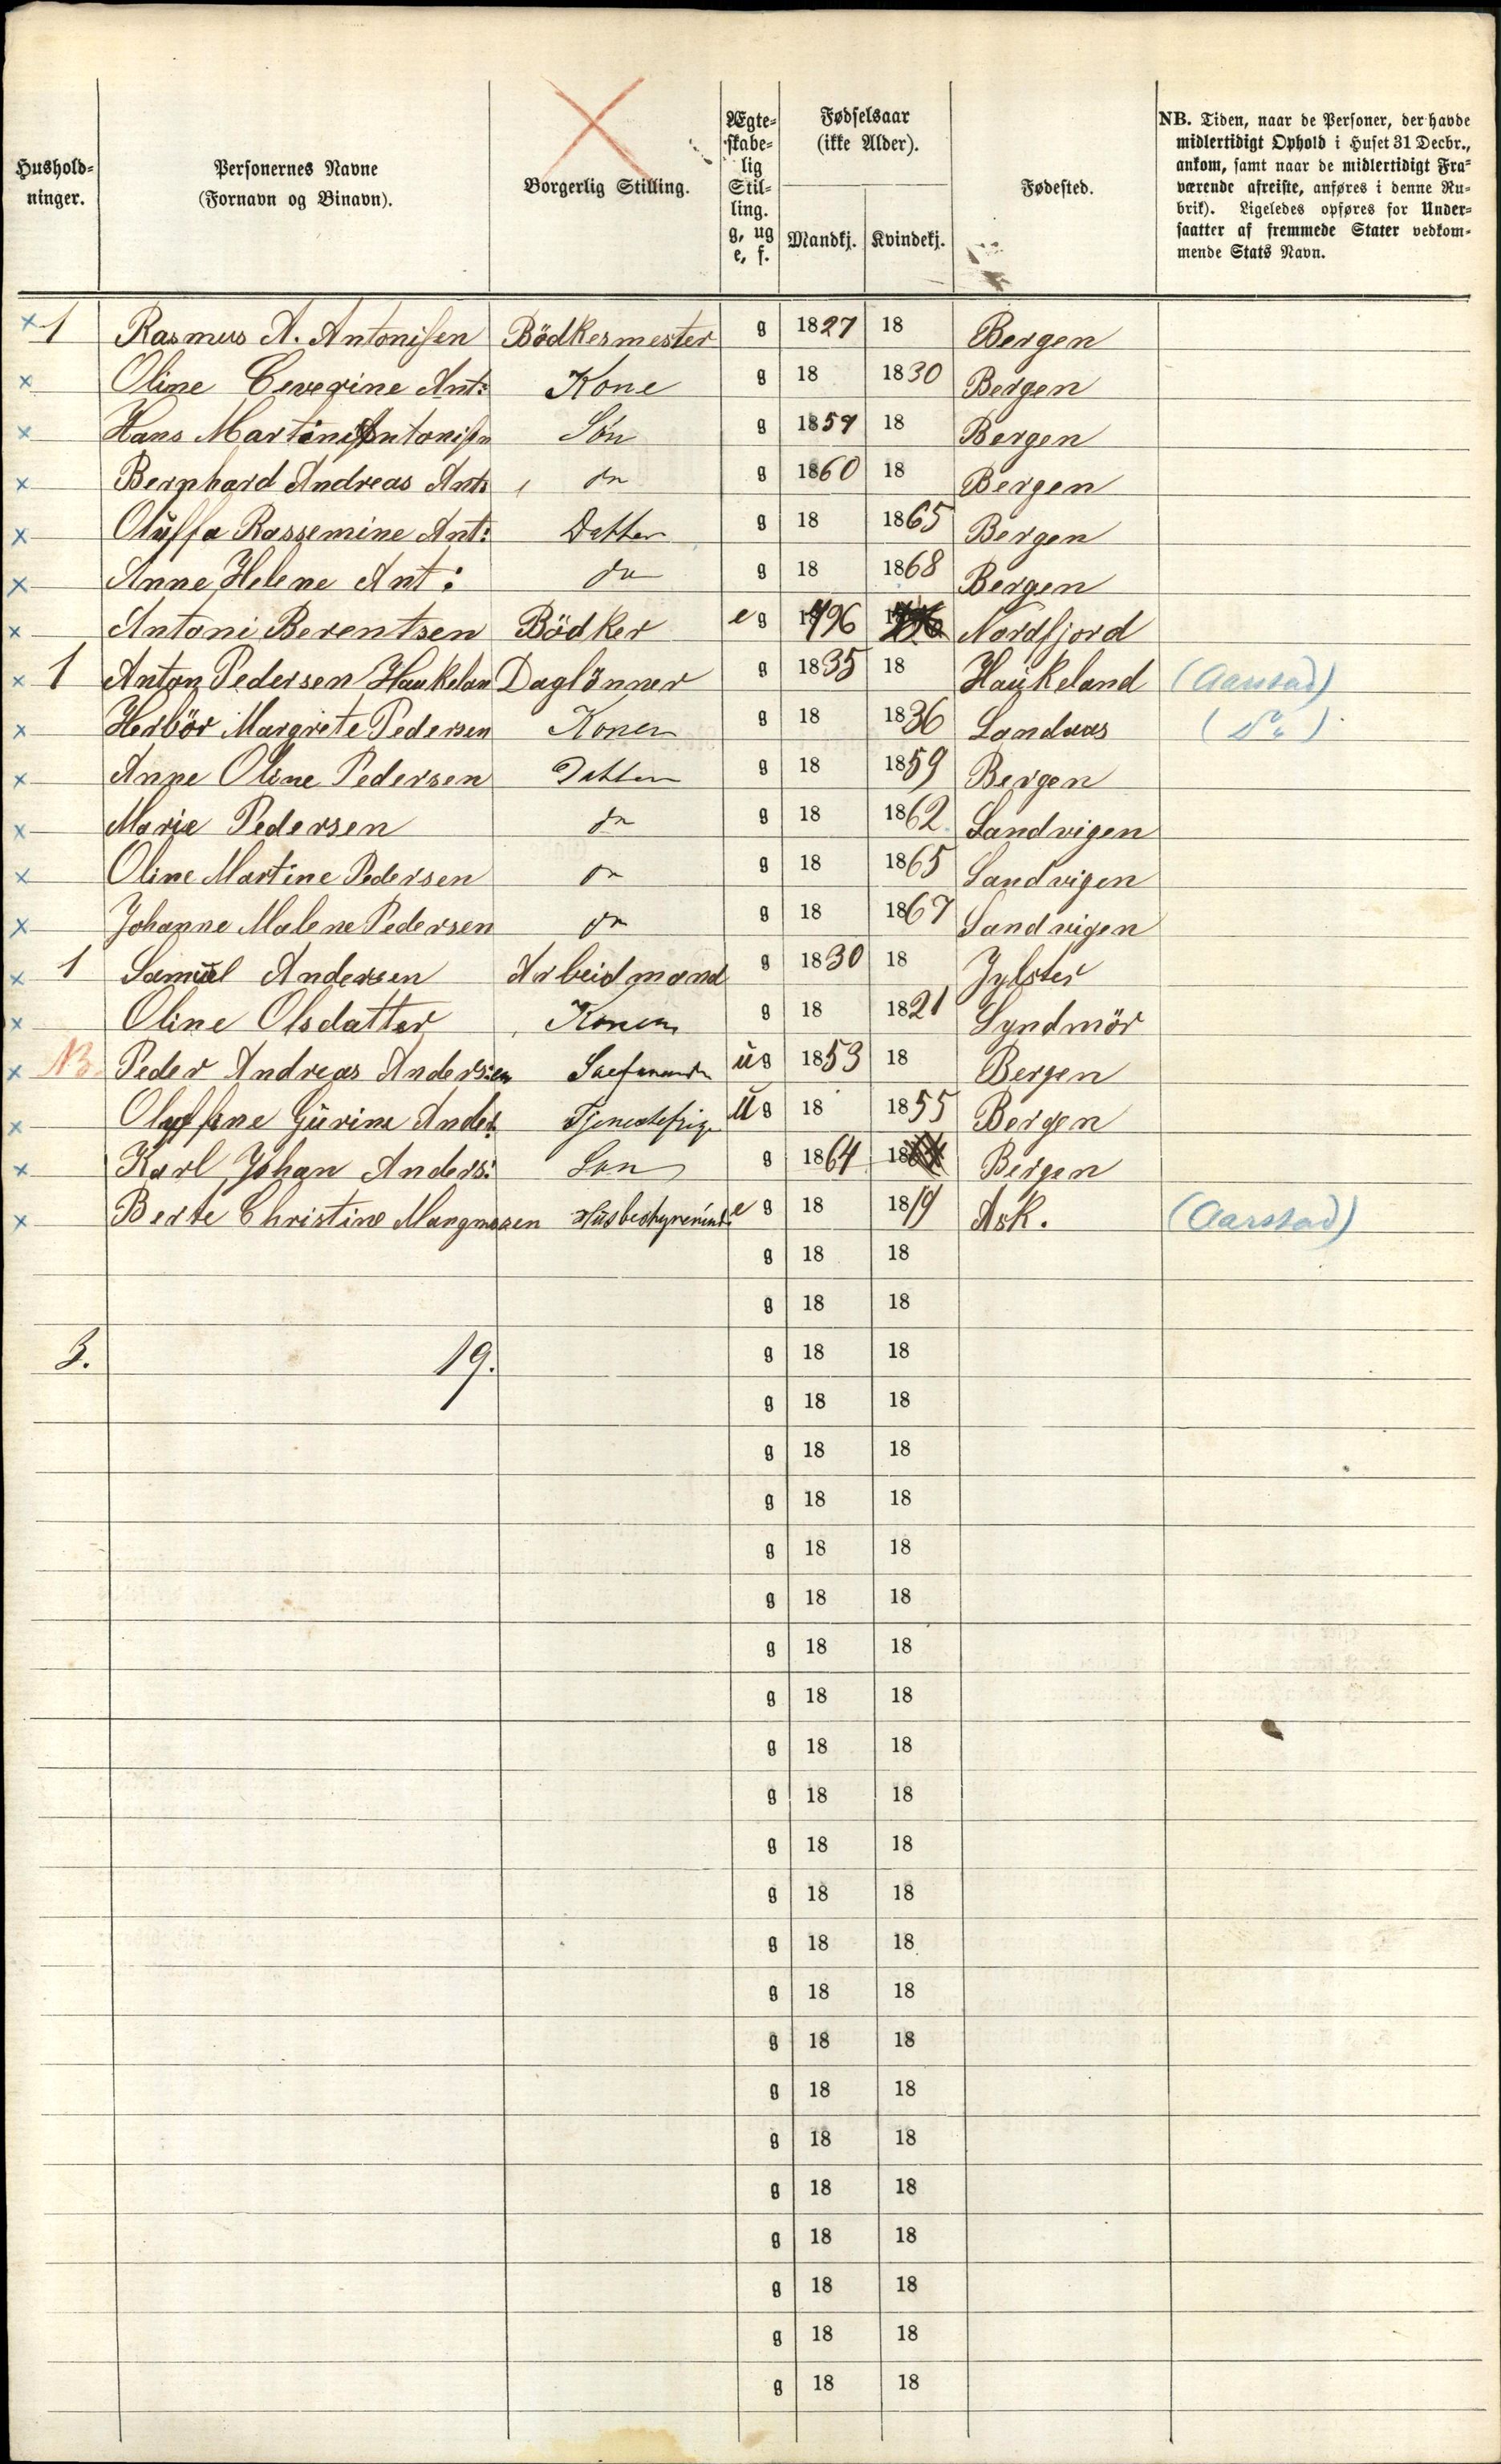 Hushold-
ninger.
Personernes Navne
(Fornavn og Binavn).
Borgerlig Stilling.
Ægte-
skabe-
lig
Stil-
ling.
g, ug
e, f.
Fødselsaar
(ikke Alder).
Mandkj. Kvindekj.
Fødested.
NB. Tiden, naar de Personer, der havde
midlertidigt Ophold i Huset 31 Decbr.,
ankom, samt naar de midlertidigt Fra-
værende afreiste, anføres i denne Ru-
brik). Ligeledes opføres for Under-
saatter af fremmede Stater vedkom-
mende Stats Navn.
× 1 Rasmus A. Antonisen Bödkermester g 1827 18 Bergen
× Oline Ceverine Ant: Kone g 18 1830 Bergen
× Hans Martin Antonisen Sön g 1857 18 Bergen
× Bernhard Andreas Ant: do g 1860 18 Bergen
× Oluffa Rassemine Ant: Datter g 18 1865 Bergen
× Anne Helene Ant: do g 18 1868 Bergen
× Antoni Berentsen Bödker e g 1796 Nordfjord
× 1 Anton Pedersen Haukelan Daglönner g 1835 18 Haukeland (Aarstad)
× Herbör Margrete Pedersen Konen g 18 1836 Landaas (Do)
× Anne Oline Pedersen Datter g 18 1859 Bergen
× Marie Pedersen do g 18 1862 Sandvigen
× Oline Martine Pedersen do g 18 1865 Sandvigen
× Johanne Malene Pedersen do g 18 1867 Sandvigen
× 1 Samuel Andersen Arbeidmand g 1830 18 Jylster
× Oline Olsdatter Konen g 18 1821 Syndmör
× NB. Peder Andreas Andersen ug 1853 18 Bergen
× Oluffine Gurine Ander: Tjenestepige ug 18 1855 Bergen
× Karl Johan Anders: Sön g 1864 18 Bergen
× Berte Christine Mangnussen Husbestyrerinde e g 18 1819 Ask. (Aarstad)
g 18 18
g 18 18
3. 19. g 18 18
g 18 18
g 18 18
g 18 18
g 18 18
g 18 18
g 18 18
g 18 18
g 18 18
g 18 18
g 18 18
g 18 18
g 18 18
g 18 18
g 18 18
g 18 18
g 18 18
g 18 18
g 18 18
g 18 18
g 18 18
g 18 18